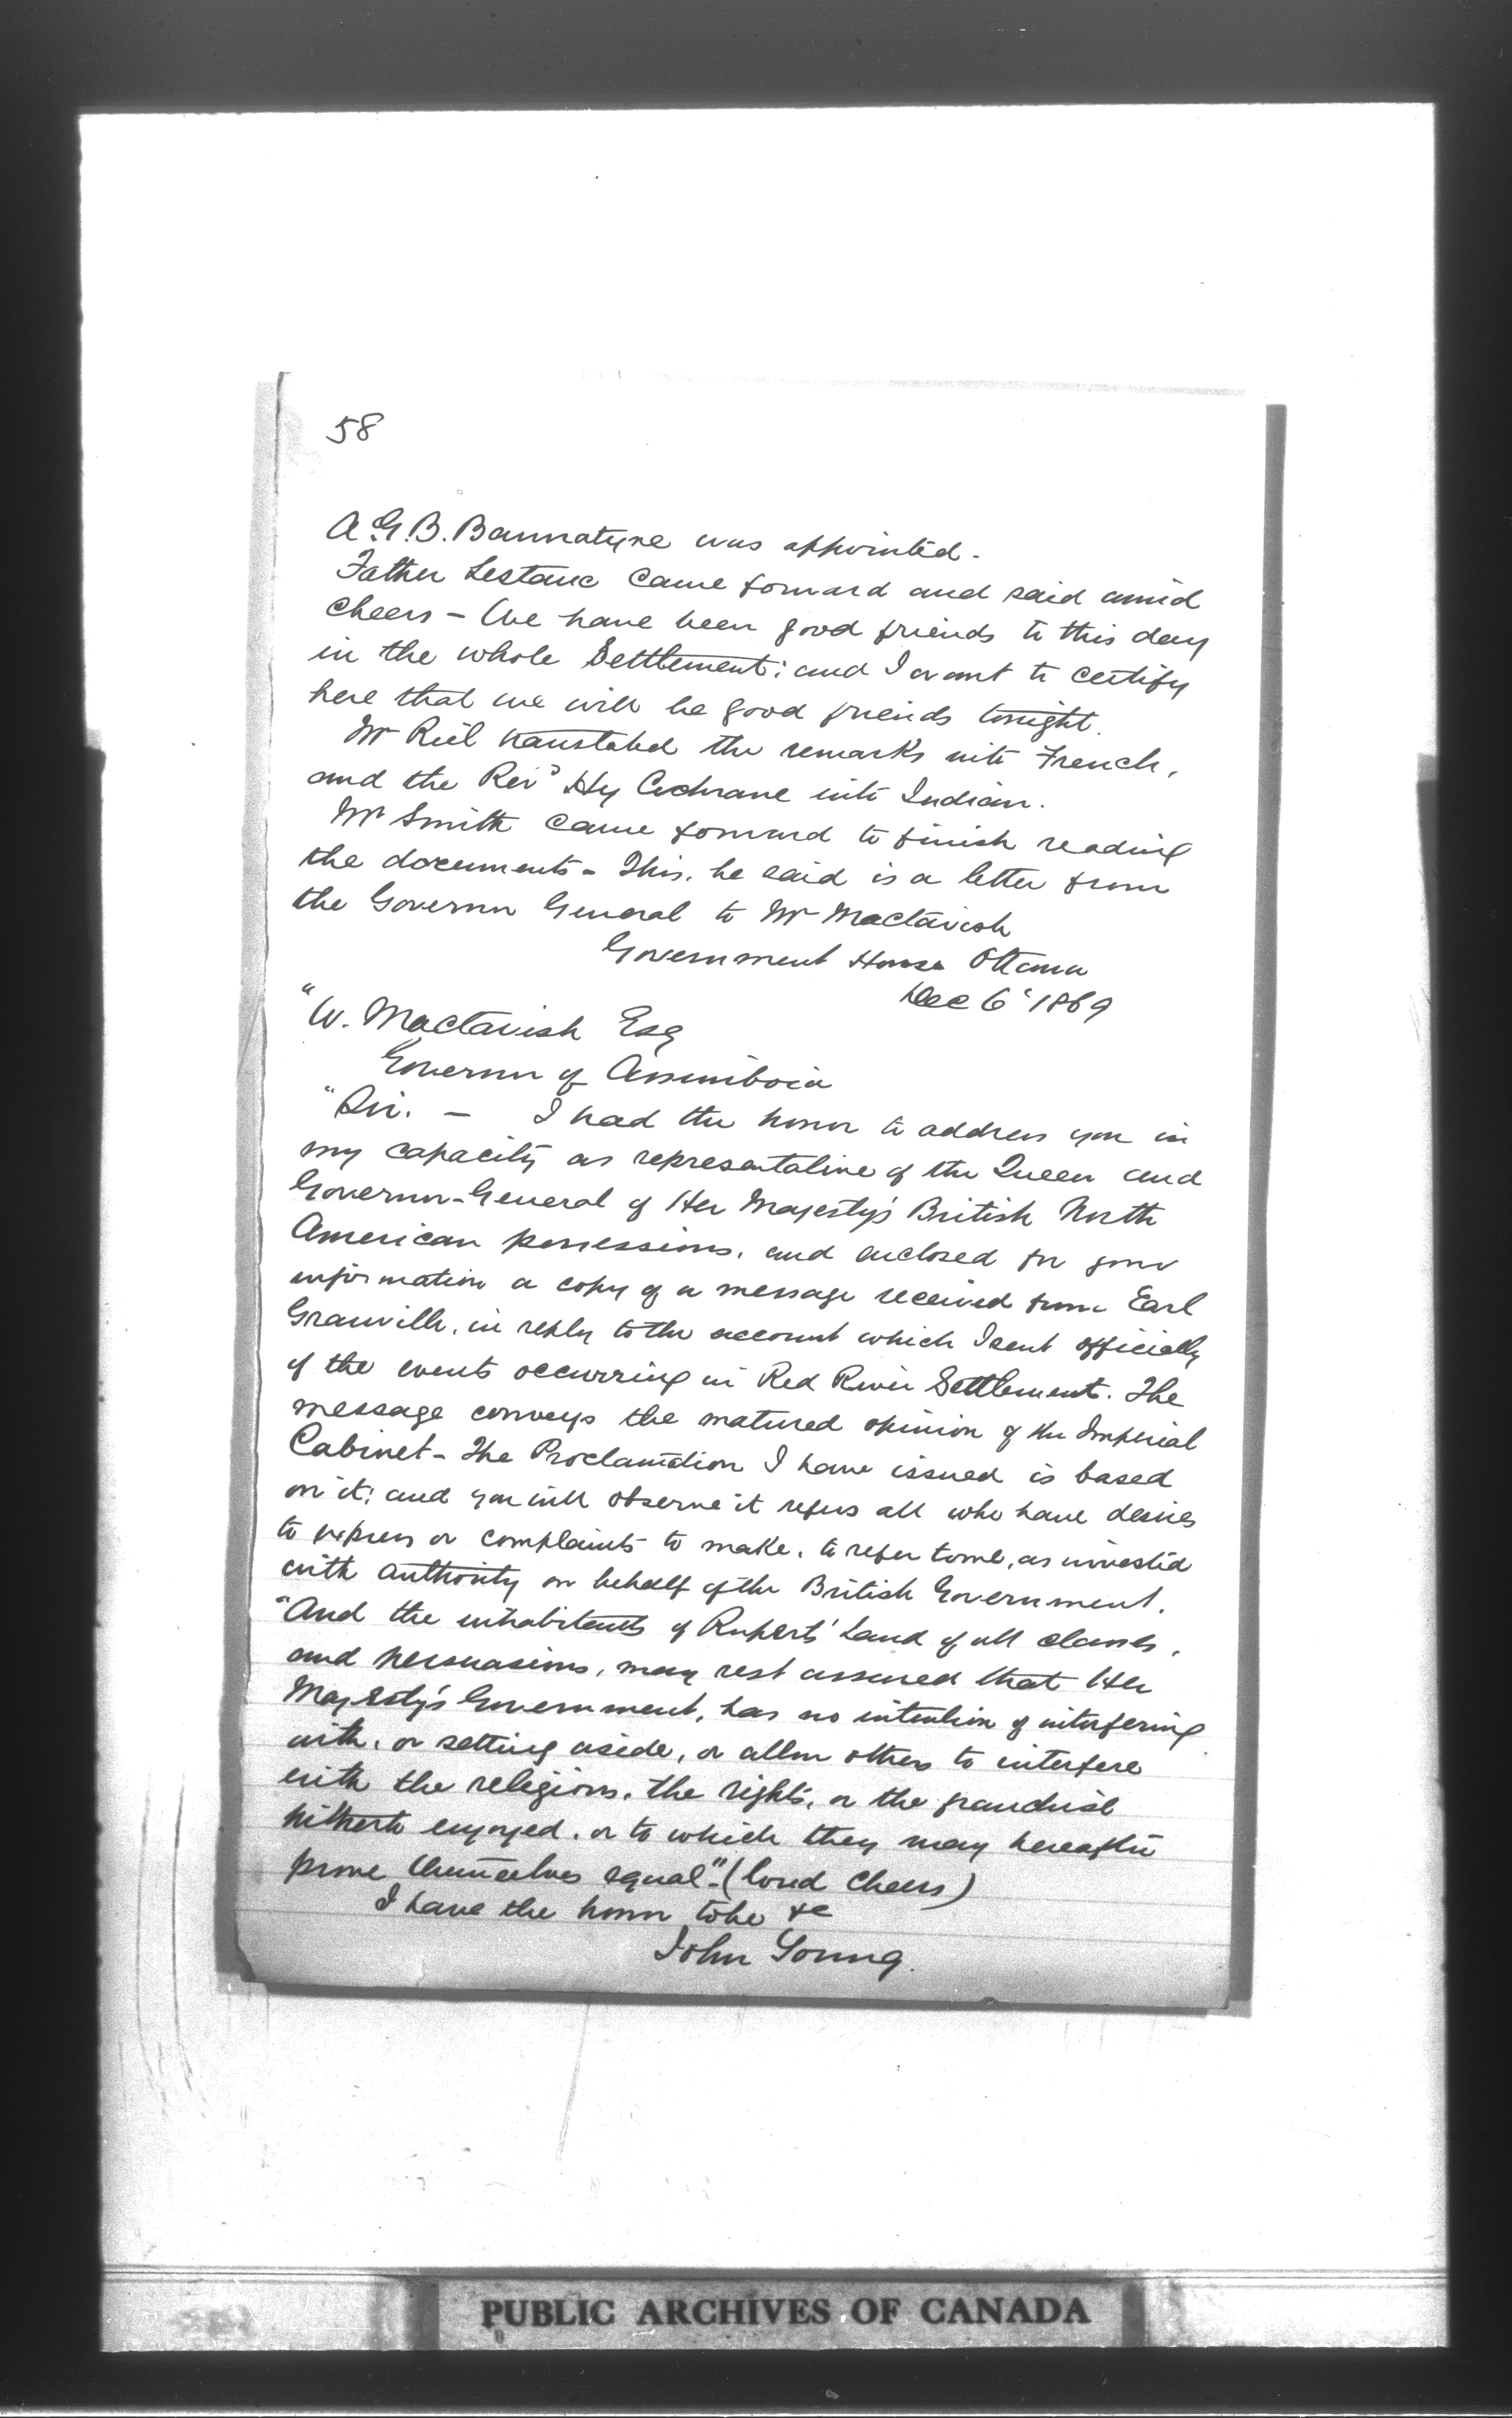 58
A. G. B. Bannatyne was appointed.
Father Lestanc came forward and said amid
cheers - We have been good friends to this day
in the whole Settlement; and I want to certify
here that we will be good friends tonight.
Mr Riel translated the remarks into French,
and the Revd Hy Cochrane into Indian.
Mr Smith came forward to finish reading
the documents - This, he said is a letter from
the Governor General to Mr Mactavish
Government House Ottawa
Dec 6 1869
"W. Mactavish Esq
Governor of Assiniboia
"Sir. - I had the honor to address you in
my capacity as representative of the Queen and
Governor-General of Her Majesty's British North
American possessions, and enclosed for your
information a copy of a message received from Earl
Granville, in reply to the account which I sent officially
of the events occurring in Red River Settlement. The
message conveys the matured opinion of the Imperial
Cabinet - The Proclamation I have issued is based
on it; and you will observe it refers all who have desires
to express or complaints to make, to refer to me, as invested
with authority on behalf of the British Government.
"And the inhabitants of Rupert's Land of all classes,
and persuasions, may rest assured that Her
Majesty's Government, has no intention of interfering
with, or setting aside, or allow others to interfere
with the religions, the rights, or the franchise
hitherto enjoyed, or to which they may hereafter
prove themselves equal." (loud Cheers)
I have the honor to be &c
John Young.
PUBLIC ARCHIVES OF CANADA